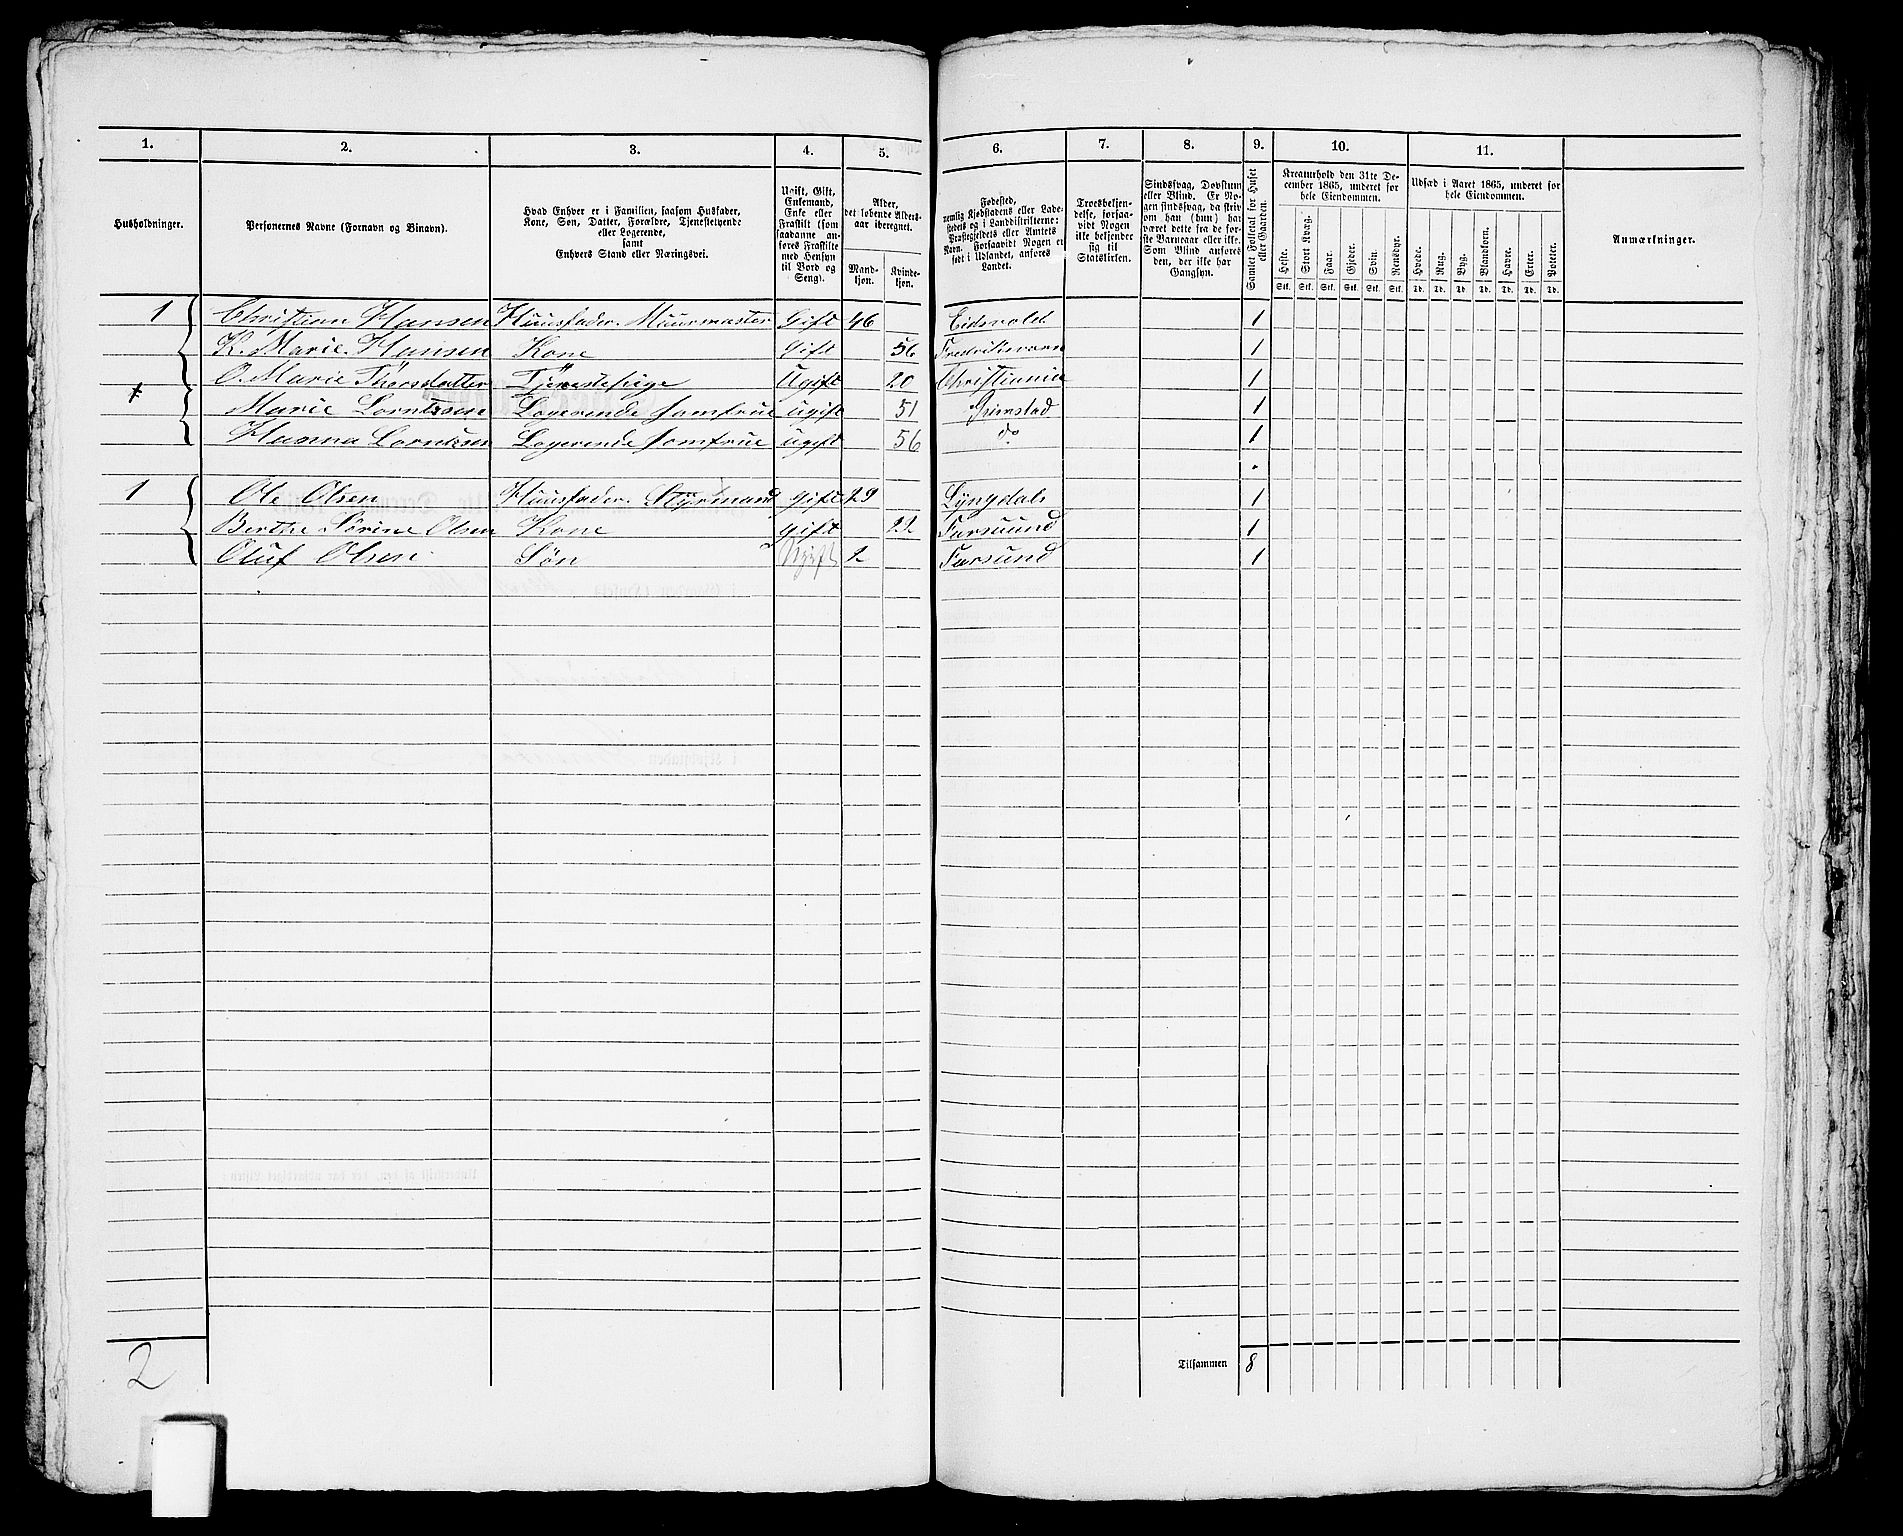 1. 2. 3. 4. 5. 6. 7. 8. 9. 10. 11.
Husholdninger.
Personernes Navne (Fornavn og Binavn).
Hvad Enhver er i Familien, saasom Husfader,
Kone, Søn, Datter, Forældre, Tjenestetyende
eller Logerende,
samt
Enhvers Stand eller Næringsvei.
Ugift, Gift,
Enkemand,
Enke eller
Fraskilt (som
saadanne an-
føres Fraskilte
med Hensyn
til Bord og
Seng).
Alder,
det løbende Alders-
aar iberegnet.
Mand-
kjøn.
Kvinde-
kjøn.
Fødested,
nemlig Kjøbstadens eller Lade-
stedets og i Landdistrikterne:
Præstegjeldets eller Amtets
Navn. Forsaavidt Nogen er
født i Udlandet, anføres
Landet.
Troesbekjen-
delse, forsaa-
vidt Nogen
ikke bekjender
sig til
Statskirken.
Sindssvag, Døvstum
eller Blind. Er No-
gen sindssvag, da skriv
om han (hun) har
været dette fra de før-
ste Barneaar eller ikke.
Som Blind anføres
den, der ikke har
Gangsyn.
Samlet Folketal for Huset
eller Gaarden.
Kreaturhold den 31te De-
cember 1865, underet før
hele Eiendommen.
Heste. Stort Kvæg. Faar. Gjeder. Svin. Rensdyr.
Stk. Stk. Stk. Stk. Stk. Stk.
Udsæd i Aaret 1865, underet for
hele Eiendommen.
Hvede. Rug. Byg. Blandkorn. Havre. Erter. Poteter.
Td. Td. Td. Td. Td. Td. Td.
Anmærkninger.
1 Christian Hansen Huusfader. Muurmester Gift 46 Eidsvold 1
K. Marie Hansen Kone Gift 56 Fredriksværn 1
O. Marie Thorsdatter Tjenestepige Ugift 20 Christiania 1
Marie Lorntzen Logerende Jomfrue Ugift 51 Grimstad 1
Hanna Lorntzen Logerende Jomfrue Ugift 56 do 1
1 Ole Olsen Huusfader. Styrmand Gift 29 Lyngdal 1
Berthe Sørine Olsen Kone Gift 22 Farsuund 1
Oluf Olsen Søn Ugift 2 Farsund 1
2
Tilsammen 8